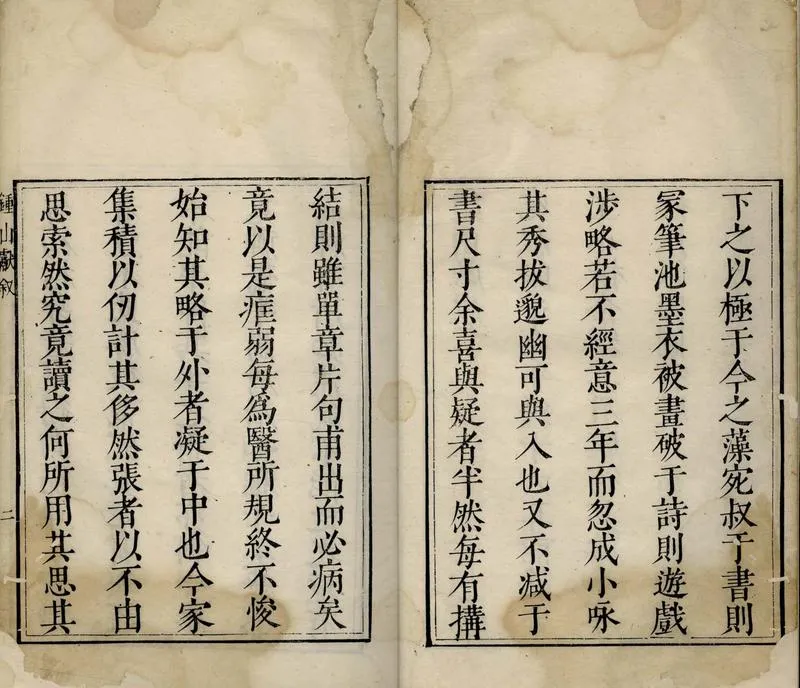 下之以極于今之藻宛叔于書則
冢筆池墨衣被畫破于詩則遊戲
涉略若不經意三年而忽成小咏
其秀拔邈幽可與入也又不減于
書尺寸余喜與疑者半然每有搆
結則雖單章片句甫出而必病矣
竟以是症弱每為醫所規終不悛
始知其略于外者凝于中也今家
集積以仞計其侈然張者以不由
思索然究竟讀之何所用其思其
鍾山獻叙
二